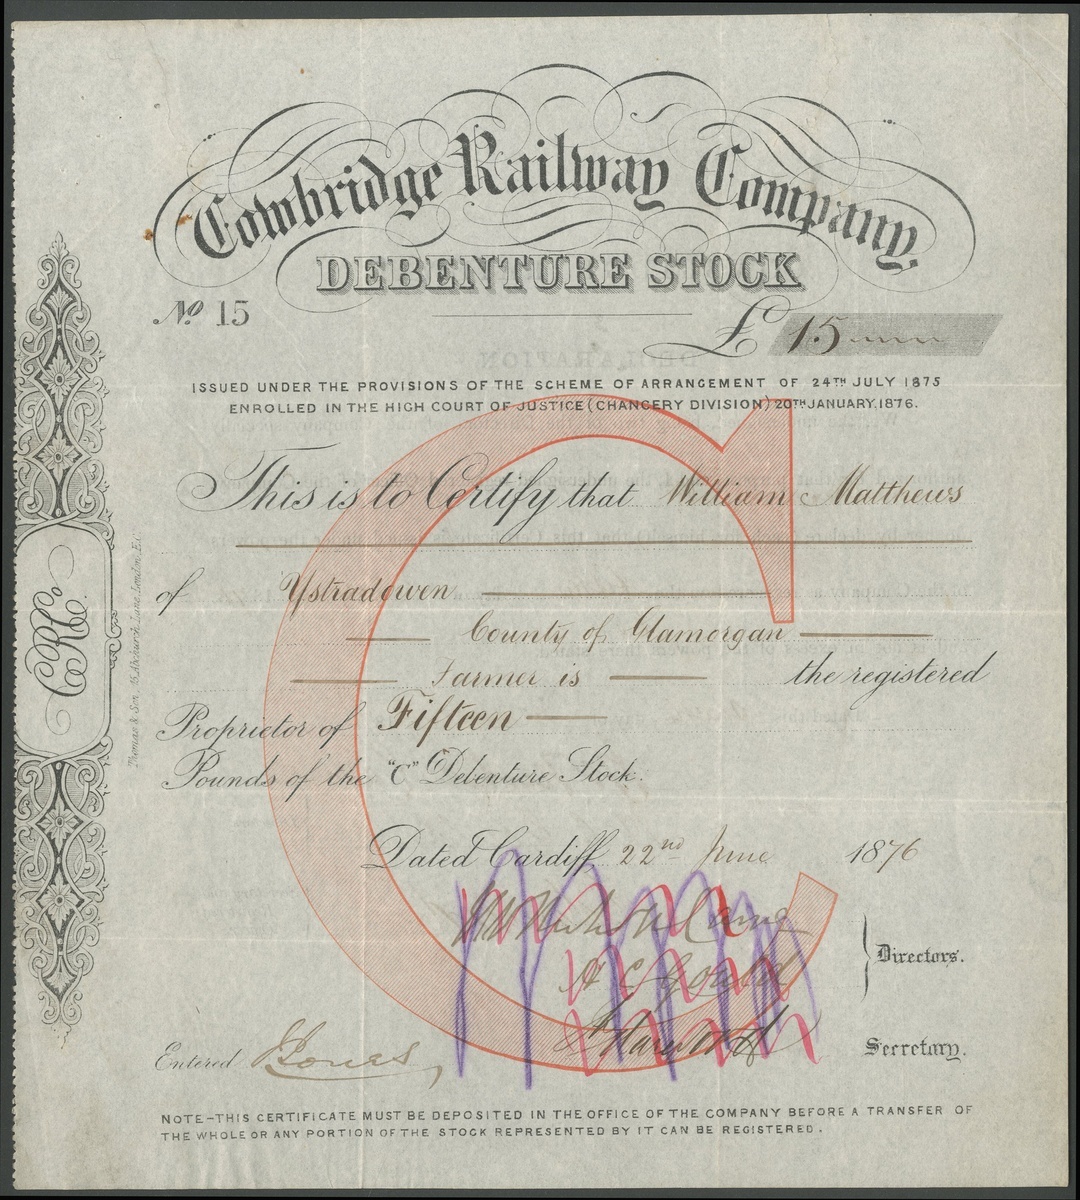 Cowbridge Railway Company,
DEBENTURE STOCK
No 15
£ 15
ISSUED UNDER THE PROVISIONS OF THE SCHEME OF ARRANGEMENT OF 24TH JULY 1875
ENROLLED IN THE HIGH COURT OF JUSTICE (CHANCERY DIVISION) 20TH JANUARY, 1876.
This is to Certify that William Matthews
of Ystradowen
County of Glamorgan
Farmer is the registered
Proprietor of Fifteen
Pounds of the "C" Debenture Stock.
Dated Cardiff 22nd June 1876
A C Gould
Directors.
Secretary.
Entered Jones
NOTE-THIS CERTIFICATE MUST BE DEPOSITED IN THE OFFICE OF THE COMPANY BEFORE A TRANSFER OF
THE WHOLE OR ANY PORTION OF THE STOCK REPRESENTED BY IT CAN BE REGISTERED.
CRC
Thomas & Son, Abchurch Lane, London, E.C.
C